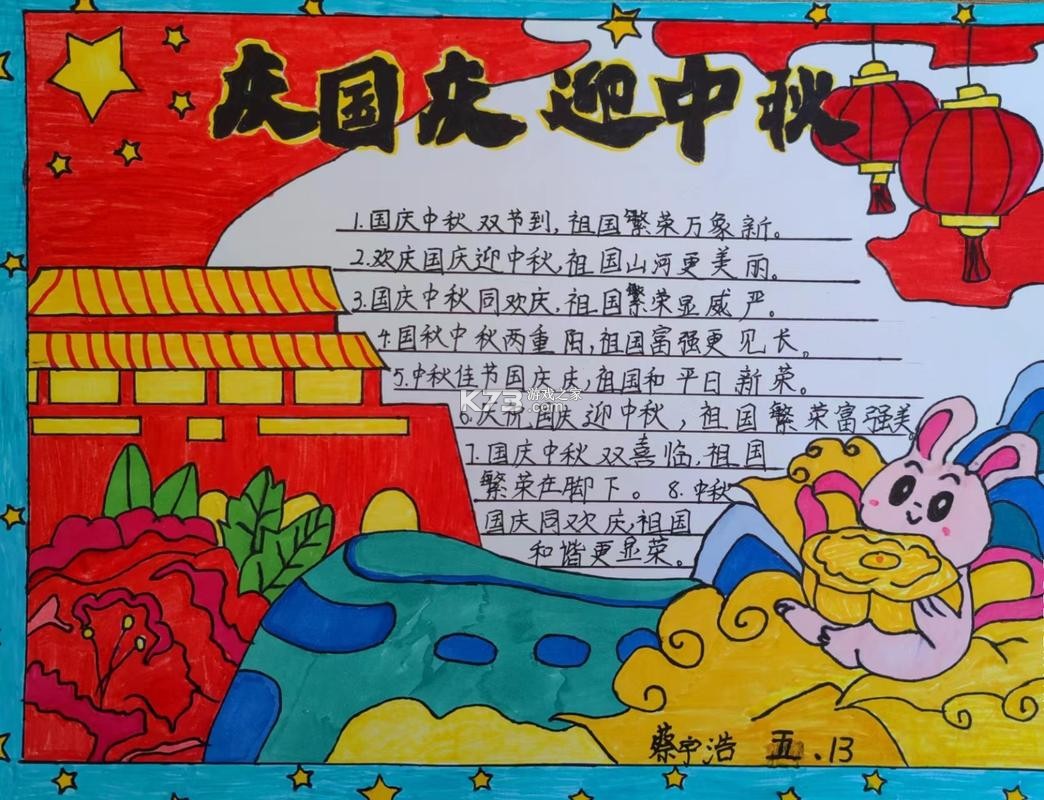 庆国庆 迎中秋
1.国庆中秋双节到,祖国繁荣万象新。
2.欢庆国庆迎中秋,祖国山河更美丽。
3.国庆中秋同欢庆,祖国繁荣显威严。
4.国秋中秋两重阳,祖国富强更见长。
5.中秋佳节国庆庆,祖国和平日新荣。
K73 游戏之家
.com
6.庆祝国庆迎中秋,祖国繁荣富强美。
7.国庆中秋双喜临,祖国
繁荣在脚下。8.中秋
国庆同欢庆,祖国
和谐更显荣。
蔡宇浩 五.13